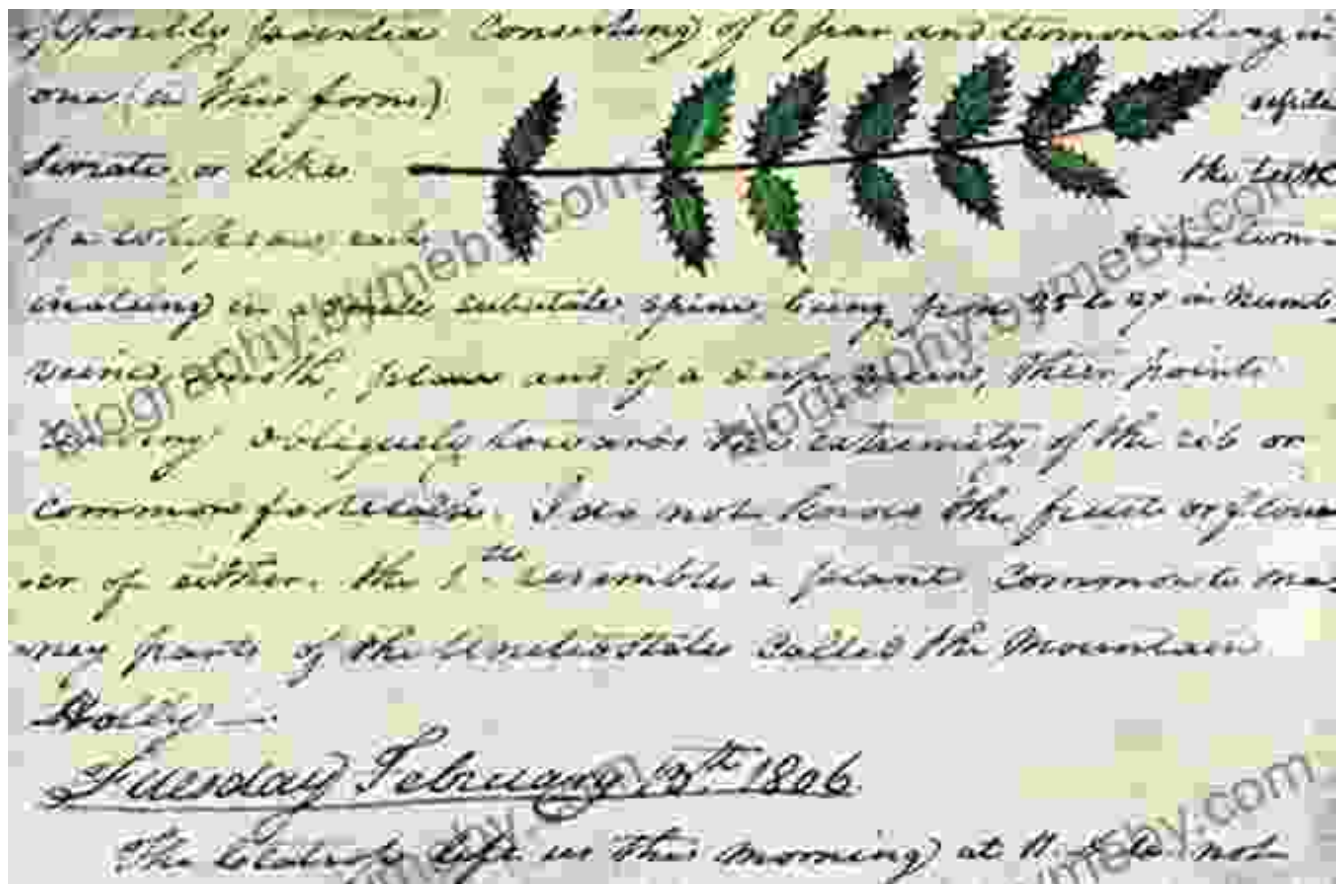 oppositely pinnate Consisting of 6 par and terminating in
one (in this form)
serrate, or like the teeth
of a whipsaw, each
inating in a small subulate spine, being from 25 to 27 in numb
veined, smooth, plane and of a deep green, their points
tending obliquely towards the extremity of the rib or
common footstalk. I do not know the fruit or flow
er of either. the 1st resembles a plant common to ma
ney parts of the United States called the Mountain
Holly —
Tuesday February 1806
The Clatsops left us this morning at 11. not
biography.bymeby.com
biography.bymeby.com